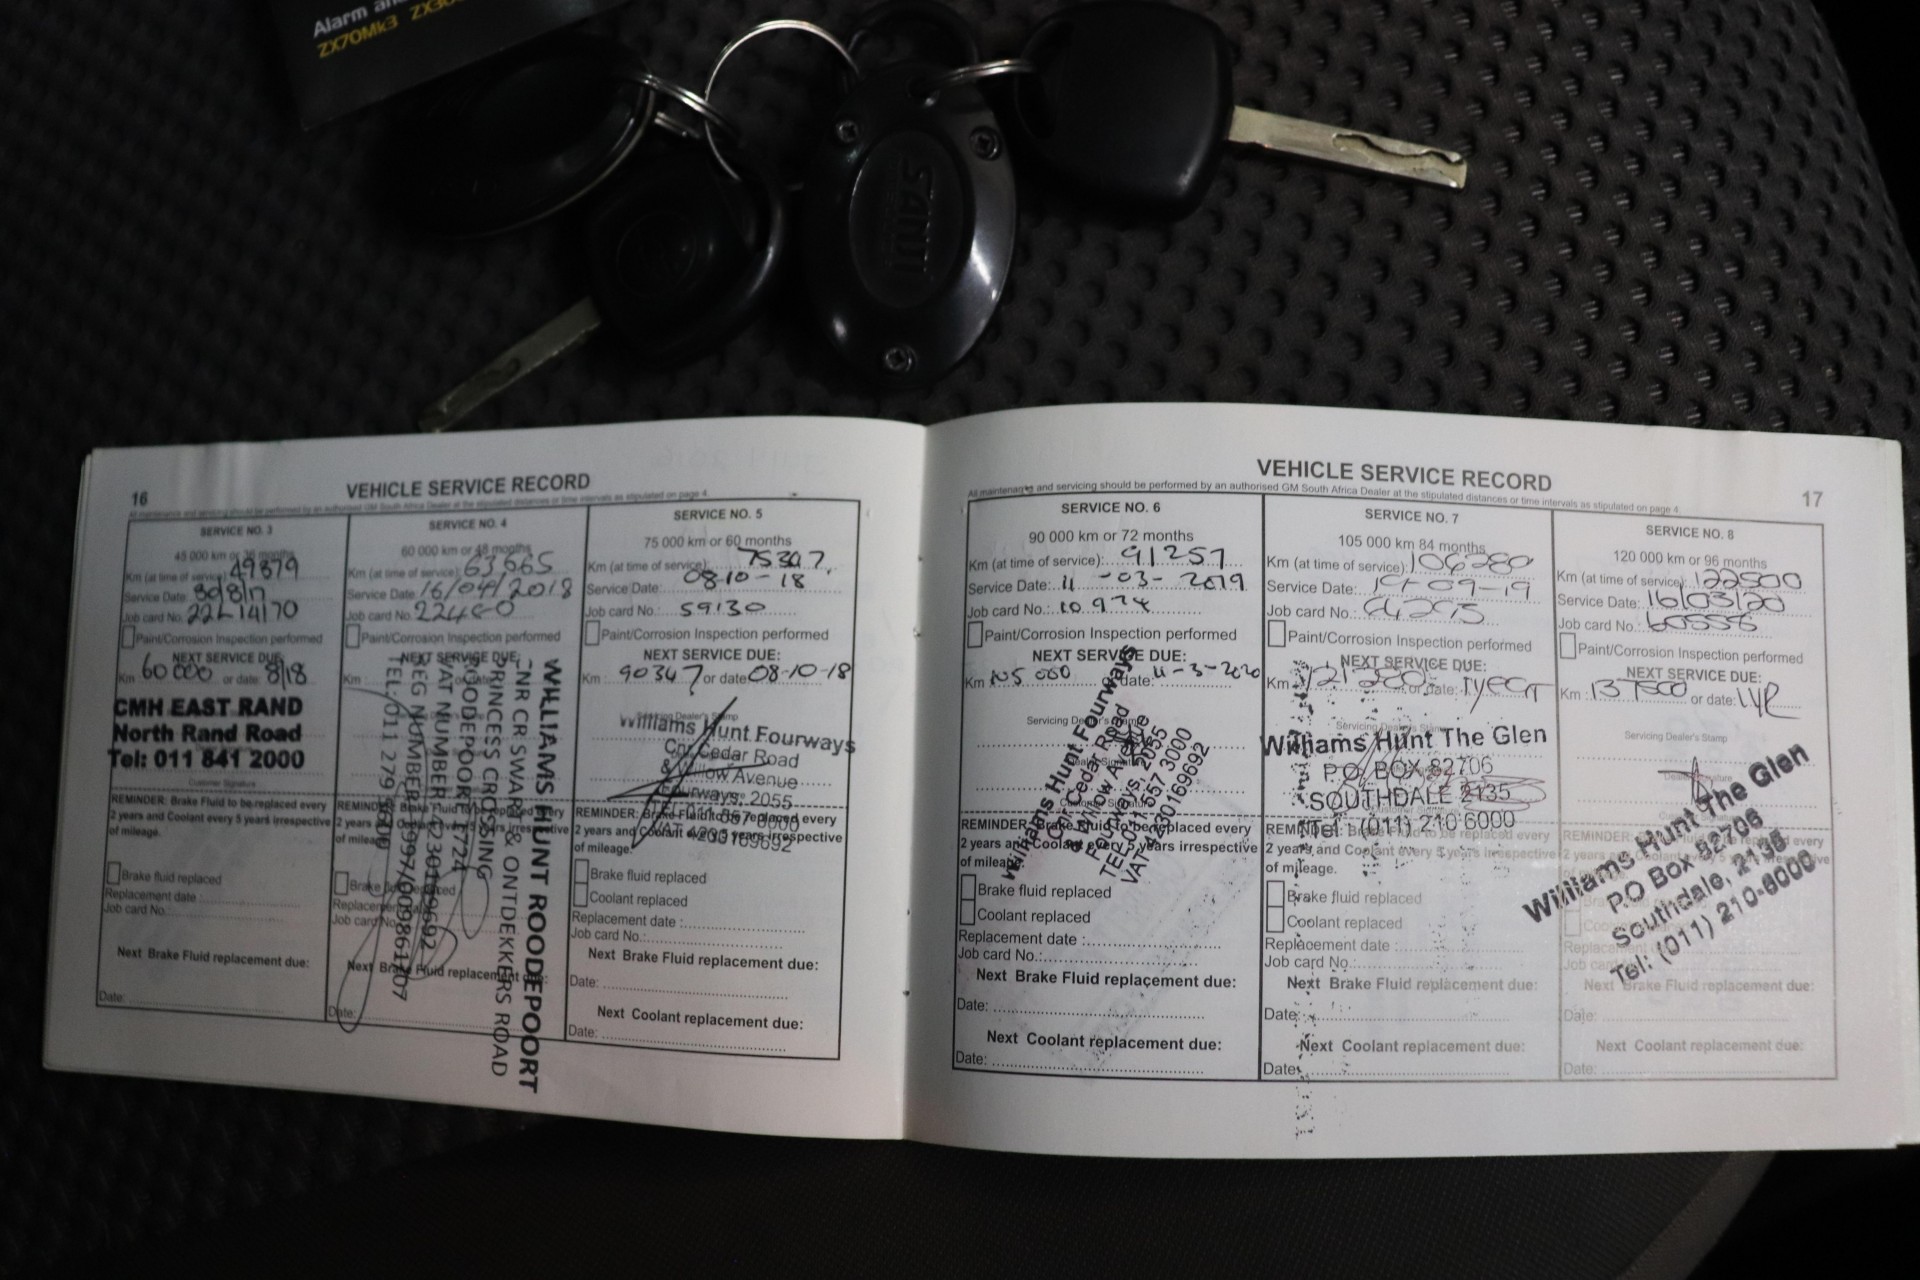 Alarm an
ZX70Mk3 ZX30
SANJI
16
VEHICLE SERVICE RECORD
All maintenance and servicing should be performed by an authorised GM South Africa Dealer at the stipulated distances or time intervals as stipulated on page 4.
SERVICE NO. 3
45 000 km or 36 months
Km (at time of service): 49879
Service Date:
Job card No.
Paint/Corrosion Inspection performed
NEXT SERVICE DUE:
Km 60 000 or date: 8/18
CMH EAST RAND
North Rand Road
Tel: 011 841 2000
Customer Signature
REMINDER: Brake Fluid to be replaced every
2 years and Coolant every 5 years irrespective
of mileage.
Brake fluid replaced
Replacement date :
Job card No.:
Next Brake Fluid replacement due:
Date:
SERVICE NO. 4
60 000 km or 48 months
Km (at time of service): 63665
Service Date: 16/04/2018
Job card No.
Paint/Corrosion Inspection performed
NEXT SERVICE DUE:
Km :
WILLIAMS HUNT ROODEPOORT
CNR CR SWART & ONTDEKKERS ROAD
PRINCESS CROSSING
ROODEPOORT 1724
VAT NUMBER 4230169692
REG NUMBER
TEL: 011 279
REMINDER: Brake Fluid to be replaced every
2 years and Coolant every 5 years irrespective
of mileage.
Brake fluid replaced
Replacement date
Job card No.
Next Brake Fluid replacement due:
Date:
SERVICE NO. 5
75 000 km or 60 months
Km (at time of service): 75347
Service Date: 08-10-18
Job card No.: 59130
Paint/Corrosion Inspection performed
NEXT SERVICE DUE:
Km : 90347 or date: 08-10-18
Servicing Dealer's Stamp
Williams Hunt Fourways
Cnr Cedar Road
& Willow Avenue
Fourways, 2055
REMINDER: Brake Fluid to be replaced every
2 years and Coolant every 5 years irrespective
of mileage.
Brake fluid replaced
Coolant replaced
Replacement date :
Job card No.:
Next Brake Fluid replacement due:
Date:
Next Coolant replacement due:
Date:
VEHICLE SERVICE RECORD
17
All maintenance and servicing should be performed by an authorised GM South Africa Dealer at the stipulated distances or time intervals as stipulated on page 4.
SERVICE NO. 6
90 000 km or 72 months
Km (at time of service): 91257
Service Date: 11-03-2019
Job card No.: 10974
Paint/Corrosion Inspection performed
NEXT SERVICE DUE:
Km 105 000 date: 11-3-2020
Servicing Dealer's Stamp
Williams Hunt Fourways
Cnr Cedar Road
& Willow Avenue
Fourways, 2055
TEL: 011 657 3000
VAT 4230169692
REMINDER: Brake Fluid to be replaced every
2 years and Coolant every 5 years irrespective
of mileage.
Brake fluid replaced
Coolant replaced
Replacement date :
Job card No.:
Next Brake Fluid replacement due:
Date:
Next Coolant replacement due:
Date:
SERVICE NO. 7
105 000 km 84 months
Km (at time of service): 106280
Service Date: 09-19
Job card No.:
Paint/Corrosion Inspection performed
NEXT SERVICE DUE:
Km : 121280 or date: 1 year
Servicing Dealer's Stamp
Williams Hunt The Glen
P.O. BOX 82706
SOUTHDALE 2135
Tel : (011) 210 6000
REMINDER: Brake Fluid to be replaced every
2 years and Coolant every 5 years irrespective
of mileage.
Brake fluid replaced
Coolant replaced
Replacement date :
Job card No.:
Next Brake Fluid replacement due:
Date:
Next Coolant replacement due:
Date:
SERVICE NO. 8
120 000 km or 96 months
Km (at time of service): 122500
Service Date: 16/03/20
Job card No.: 60558
Paint/Corrosion Inspection performed
NEXT SERVICE DUE:
Km : 137500 or date: 1yr
Servicing Dealer's Stamp
Williams Hunt The Glen
P.O Box 82706
Southdale, 2135
Tel: (011) 210-6000
REMINDER:
2 years and Coolant every
of mileage
Next Brake Fluid replacement due:
Date:
Next Coolant replacement due:
Date: